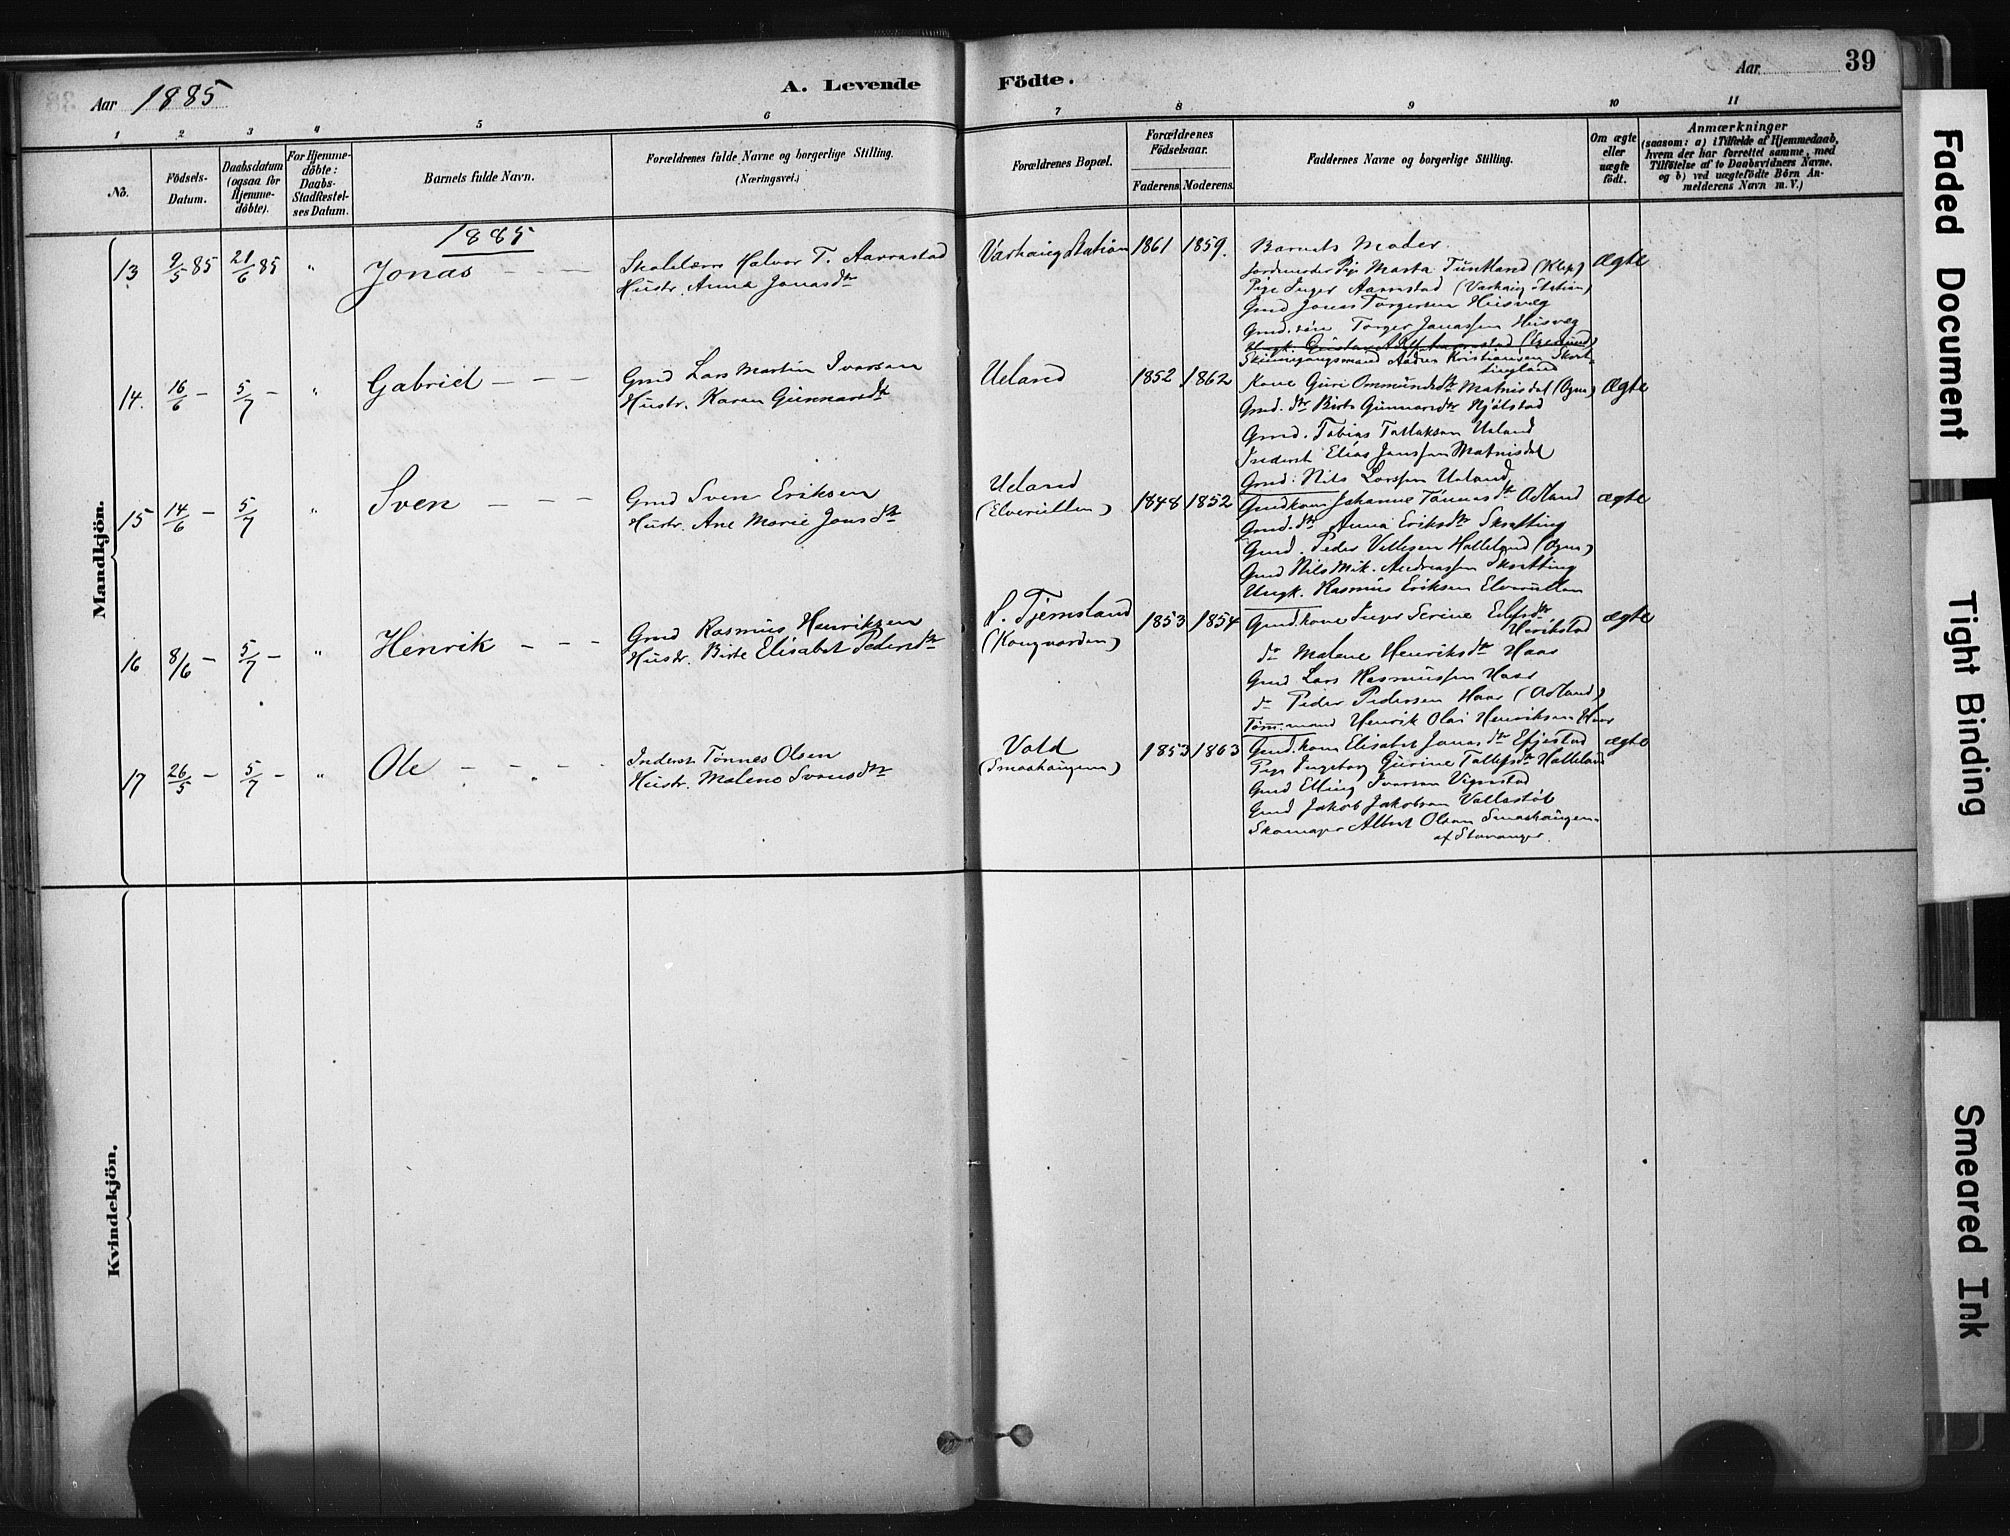 Aar 1885
A. Levende
Födte.
Aar
39
1 2 3 4 5 6 7 8 9 10 11
No.
Födsels-
Datum.
Daabsdatum
(ogsaa for
Hjemme-
döbte).
For Hjemme-
döbte:
Daabs-
Stadfæstel-
ses Datum.
Barnets fulde Navn.
Forældrenes fulde Navne og borgerlige Stilling.
(Næringsvei.)
Forældrenes Bopæl.
Forældrenes
Födselsaar.
Faderens. Moderens.
Faddernes Navne og borgerlige Stilling.
Om ægte
eller
uægte
födt.
Anmærkninger
(saasom: a) i Tilfælde af Hjemmedaab,
hvem der har forrettet samme, med
Tilföielse af to Daabsvidners Navne,
og b) ved uægtefödte Börn An-
melderens Navn m. V.)
Mandkjön.
1885
13 9/5 85 21/6 85 " Jonas - - -
Skolelærer Halvor T. Aarrestad
Hustr. Anna Jonasdtr
Varhaug Station 1861 1859.
Barnets Moder.
Jordmoder Pige Marta Tuntland (Klep)
Pige Inger Aarrestad (Varhaug Station)
Gmd Jonas Torgersen Husveg
Gmd. sön Torger Jonassen Husveg
Kristiansen
Ægte
14. 16/6 - 5/7 - " Gabriel - - -
Gmd Lars Martin Ivarsen
Hustr. Karen Gunnarsdtr
Ueland 1852 1862
Kone Guri Ommundsdtr Matnisdal (Ogna)
Gmd. dtr Berte Gunnarsdtr Njölstad
Gmd. Tobias Tollaksen Ueland
Inderst Elias Janssen Matnisdal
Gmd. Nils Larssen Ueland
Ægte
15 14/6 - 5/7 " Sven - - -
Gmd Sven Eriksen
Hustr. Ane Marie Jonsdtr
Ueland
(Elverutten) 1848 1852
Gmdkone Johanne Tönnesdtr Odland
Gmd. dtr Anna Eriksdtr Skretting
Gmd. Peder Villesen Halleland (Ogna)
Gmd Nils Mik. Andreassen Skretting
Ungk. Rasmus Eriksen Elverutten
ægte
16 8/6 - 5/7 - " Henrik - - -
Gmd Rasmus Henriksen
Hustr. Berte Elisabet Pedersdtr
S. Tjemsland
(Kongvarden) 1853 1854
Gmd. kone Inger Serine
do Malene Henriksdtr Haar
Gmd Lars Rasmussen Haar
do Peder Pedersen Haar (Odland)
Töm.mand Henrik Olai Henriksen Haar
ægte
17 26/5 - 5/7 - " Ole - - - -
Inderst Tönnes Olsen
Hustr. Malene Svensdtr
Vold
(Smaahaugene) 1853 1863
Gmd. kone Elisabet Jonasdtr
Pige Ingeborg Gurine Tollefsdtr Halleland
Gmd Elling Ivarsen Vigrestad
Gmd Jakob Jakobsen
Skomager Albert Olsen Smaahaugene
af Stavanger.
ægte
Kvindekjön.
Faded Document
Tight Binding
Smeared Ink